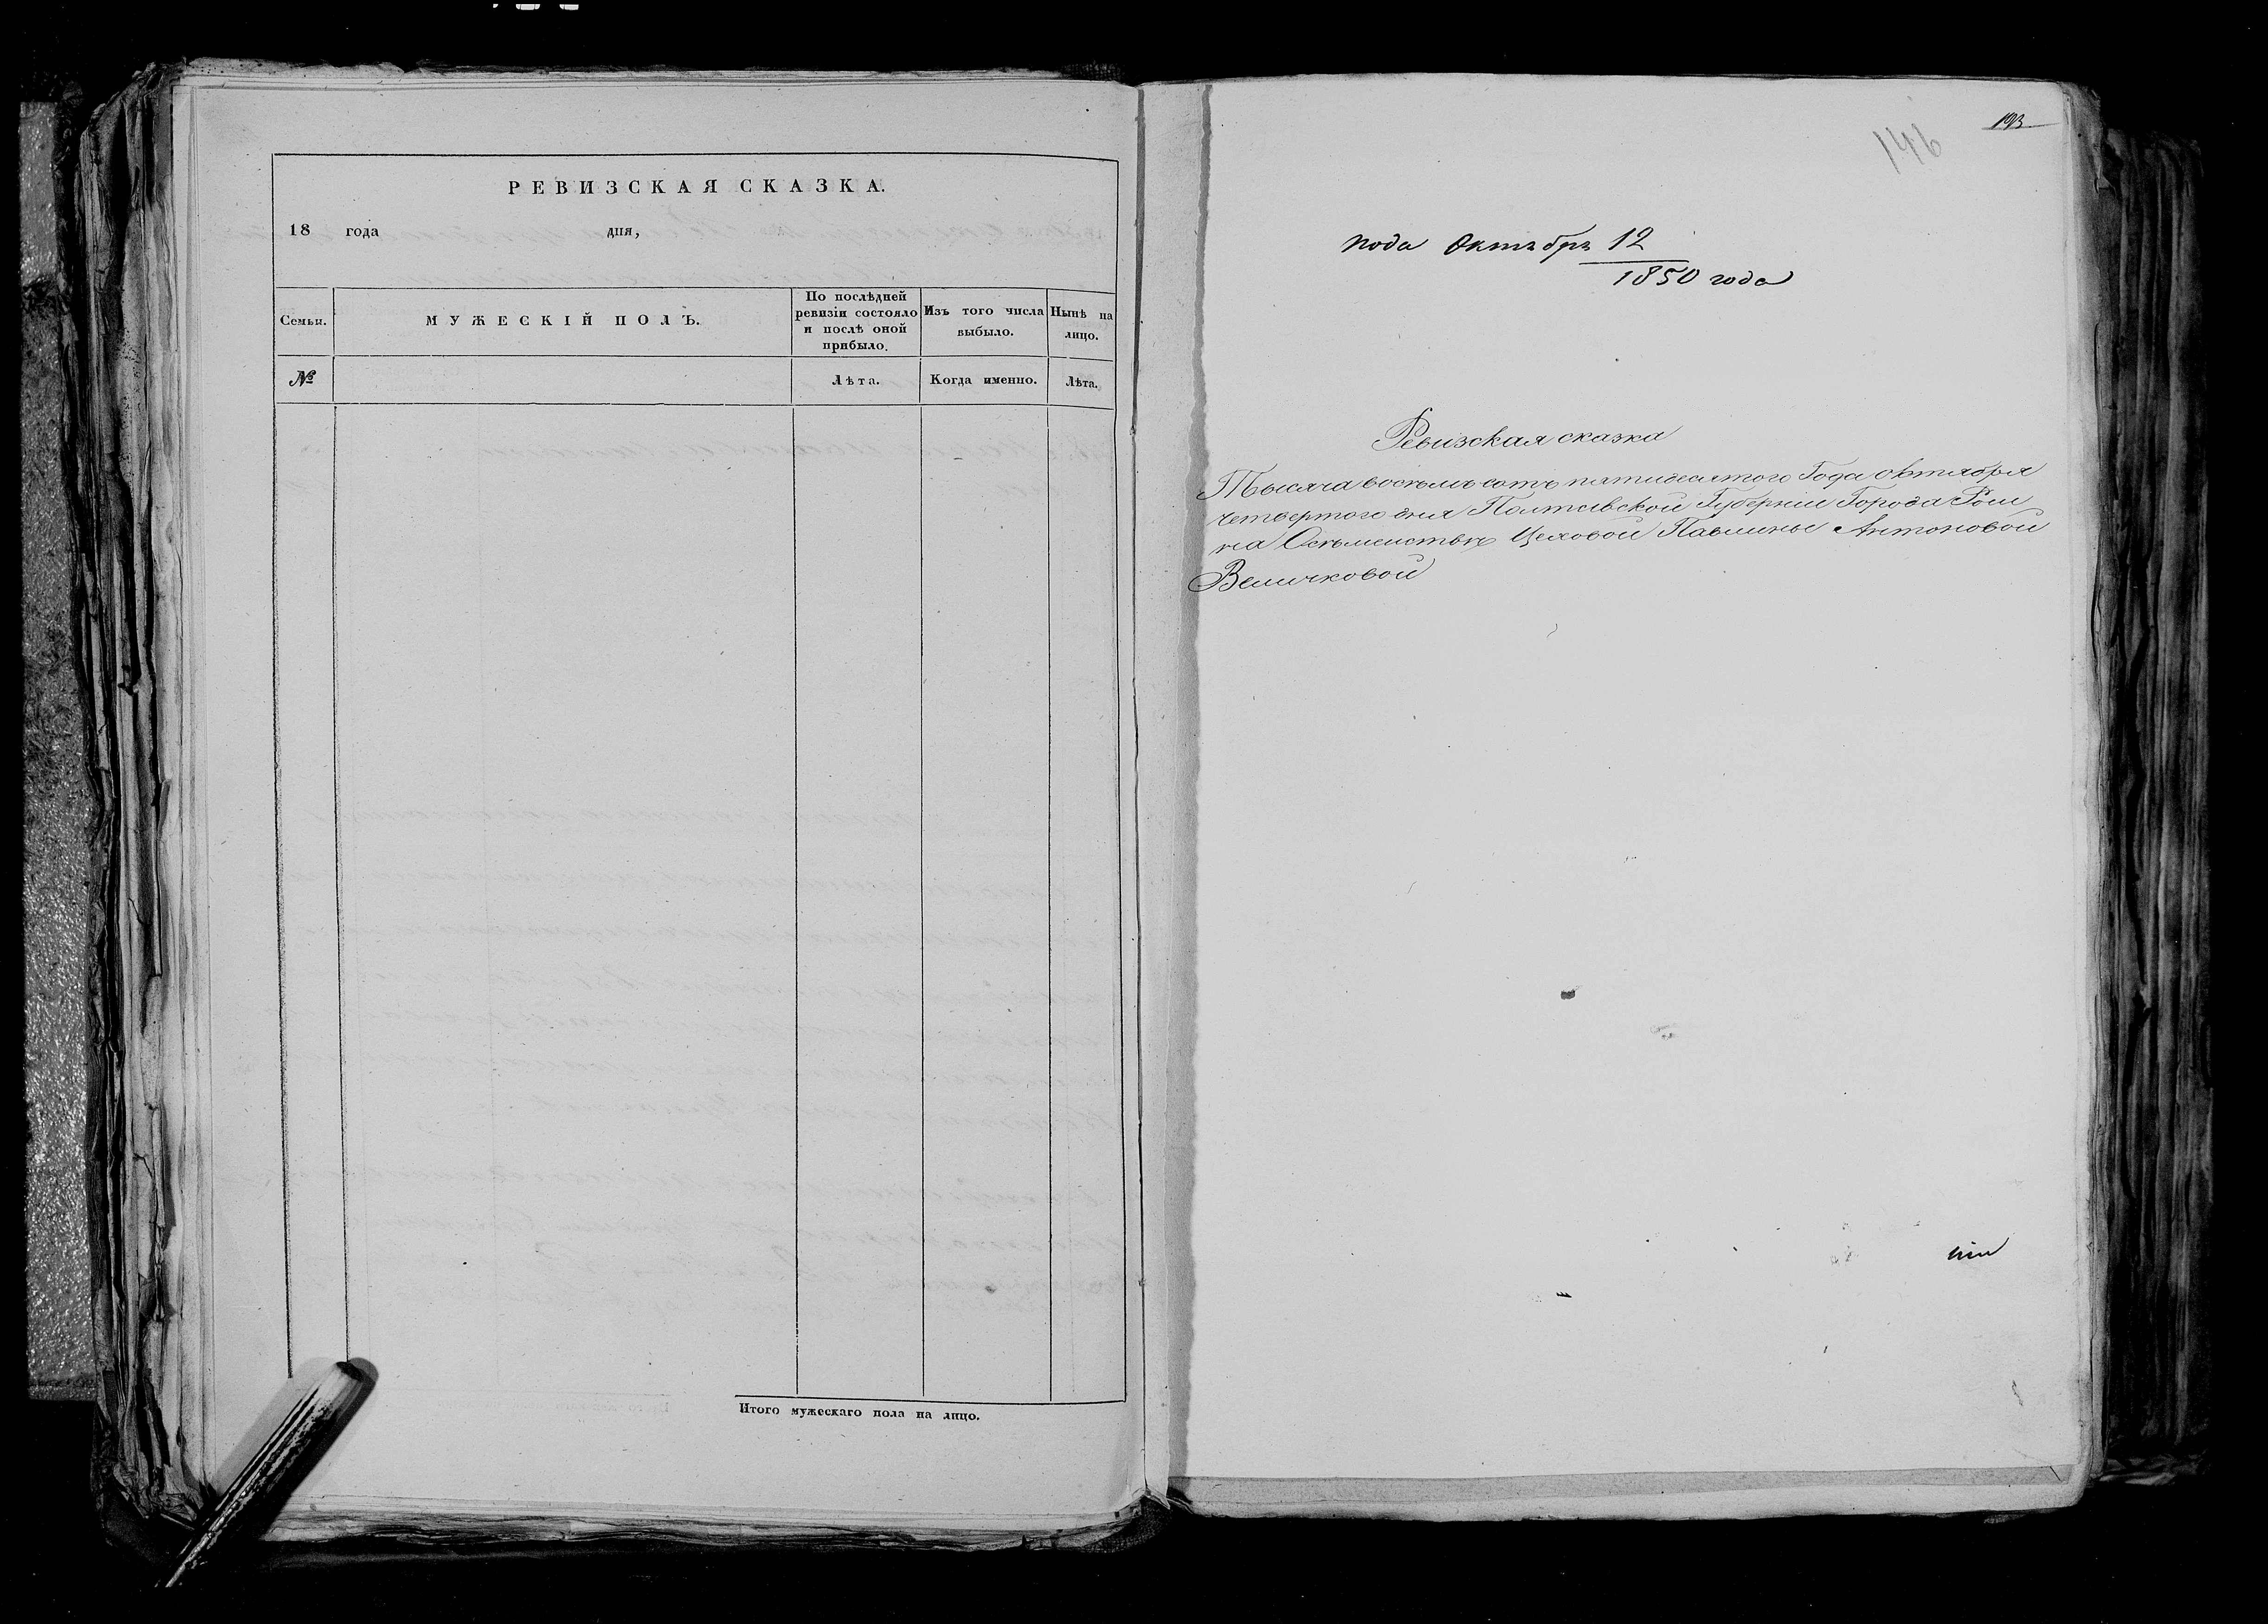 РЕВИЗСКАЯ СКАЗКА.
18 года дня,
Семьи.
МУЖЕСКІЙ ПОЛЪ.
По послѣдней
ревизіи состояло
и послѣ оной
прибыло.
Изъ того числа
выбыло.
Нынѣ на
лицо.
№
Лѣта.
Когда именно.
Лѣта.
Итого мужескаго пола на лицо.
193
146
пода Октября 12
1850 года
Ревизская сказка
Тысяча восемь сотъ пятидесятого Года октября
четвертого дня Полтавской Губерніи Города Ром
на Цеховой Павлины Антоновой
Величковой